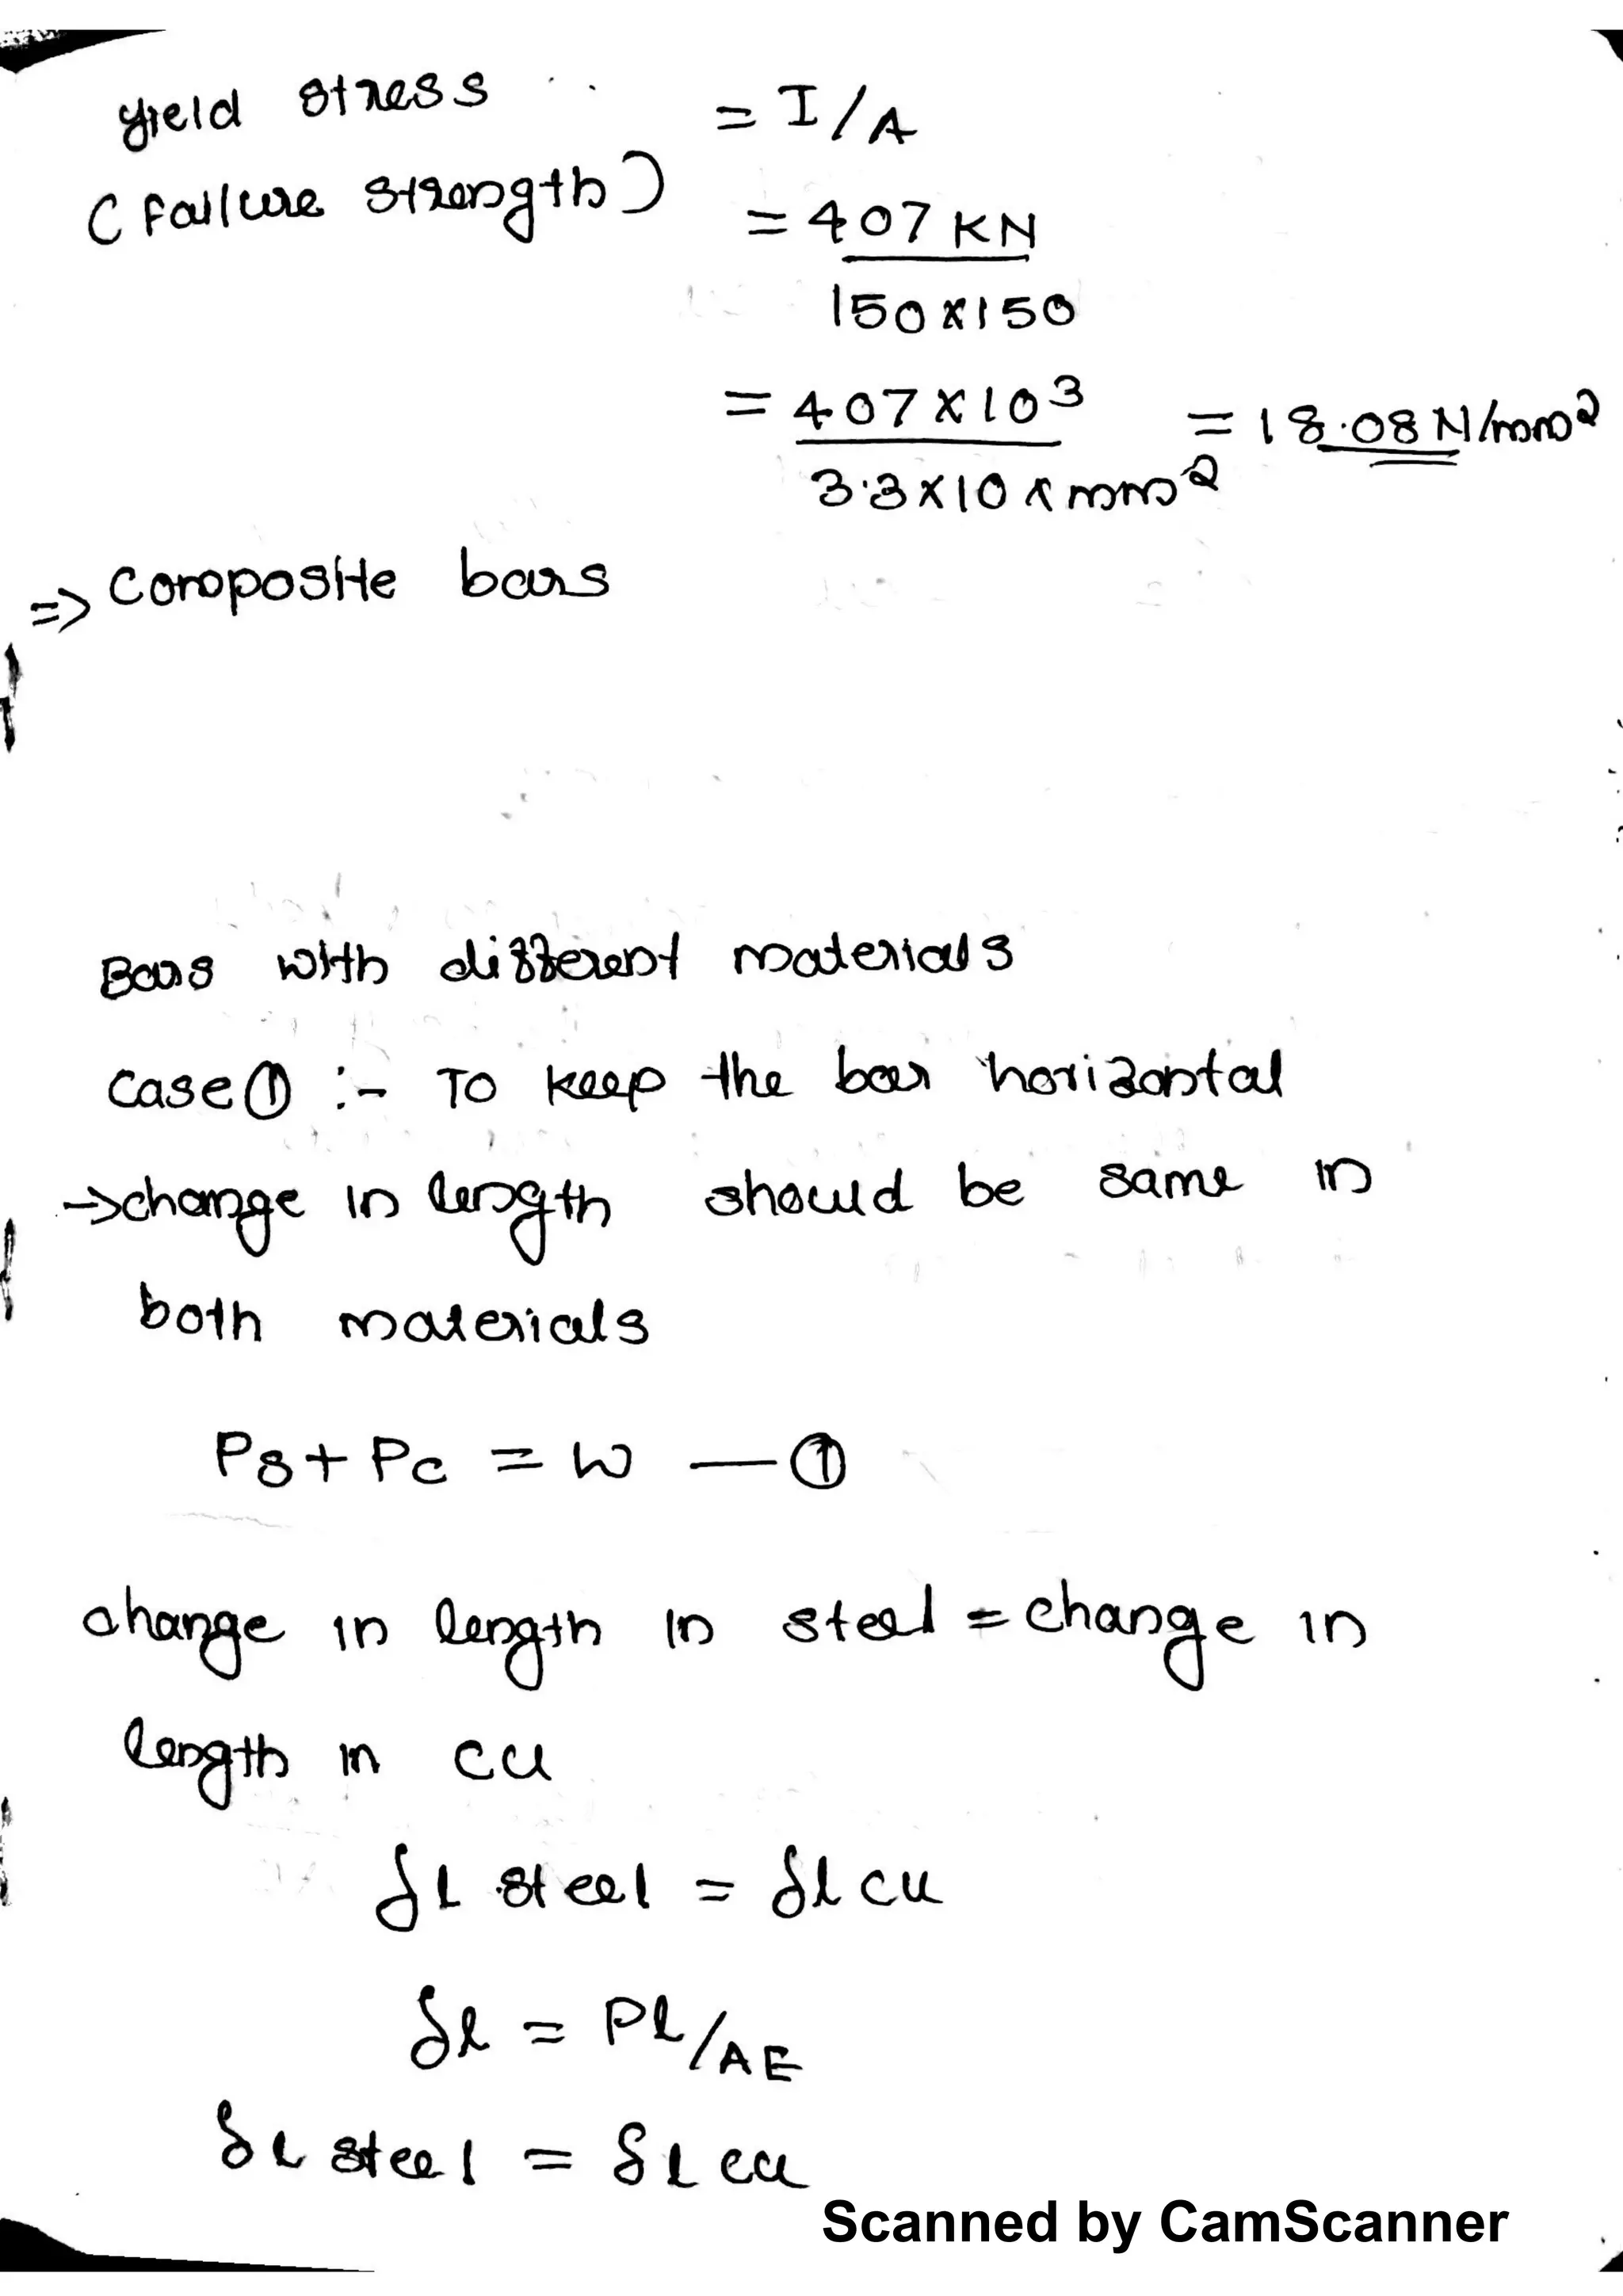 yield stress = I/A
(Failure strength)
= 407 KN
150x150
= 407x10³ = 18.08 N/mm²
3.3x10 x mm²
=> Composite bars
Bars with different materials
Case ① :- To keep the bar horizontal
-> change in length should be same in
both materials
Ps + Pc = W — ①
change in length in steel = change in
length in cu
δl steel = δl cu
δl = Pl/AE
δl steel = δl cu
Scanned by CamScanner